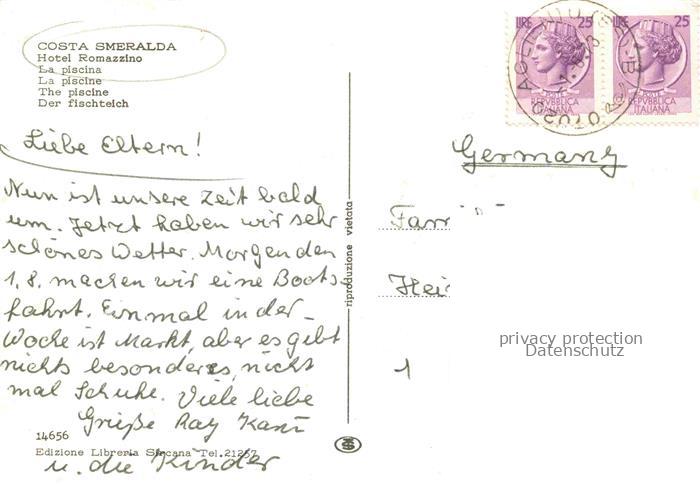 COSTA SMERALDA
Hotel Romazzino
La piscina
La piscine
The piscine
Der fischteich
LIRE 25
LIRE 25
POSTE
REPVBBLICA
ITALIANA
POSTE
REPVBBLICA
ITALIANA
Liebe Eltern!
Nun ist unsere Zeit bald
um. Jetzt haben wir sehr
schönes Wetter. Morgen den
1.8. machen wir eine Boots-
fahrt. Einmal in der
Woche ist Markt, aber es gibt
nichts besonderes, nicht
mal Schuhe. Viele liebe
Grüße Ray
u. die Kinder
14656
Edizione Libreria Sarcana Tel. 21257
riproduzione vietata
Germany
Fam
Hei
1
privacy protection
Datenschutz